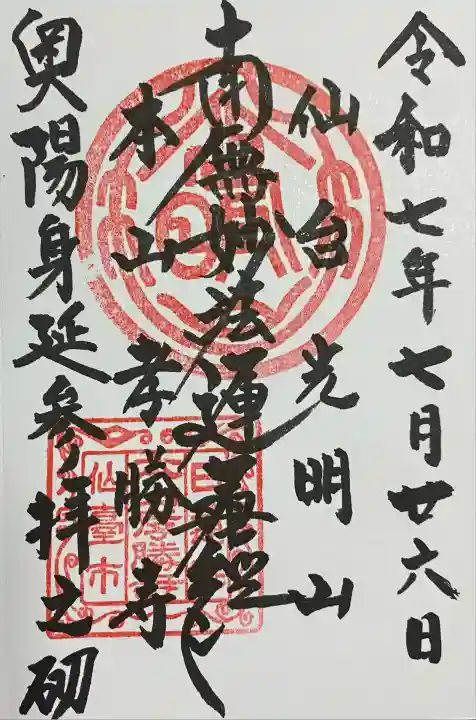 令和七年七月廿六日
仙台 光明山
南無妙法蓮華経
本山 孝勝寺
奥陽身延参拝之砌
仙臺市
孝勝寺